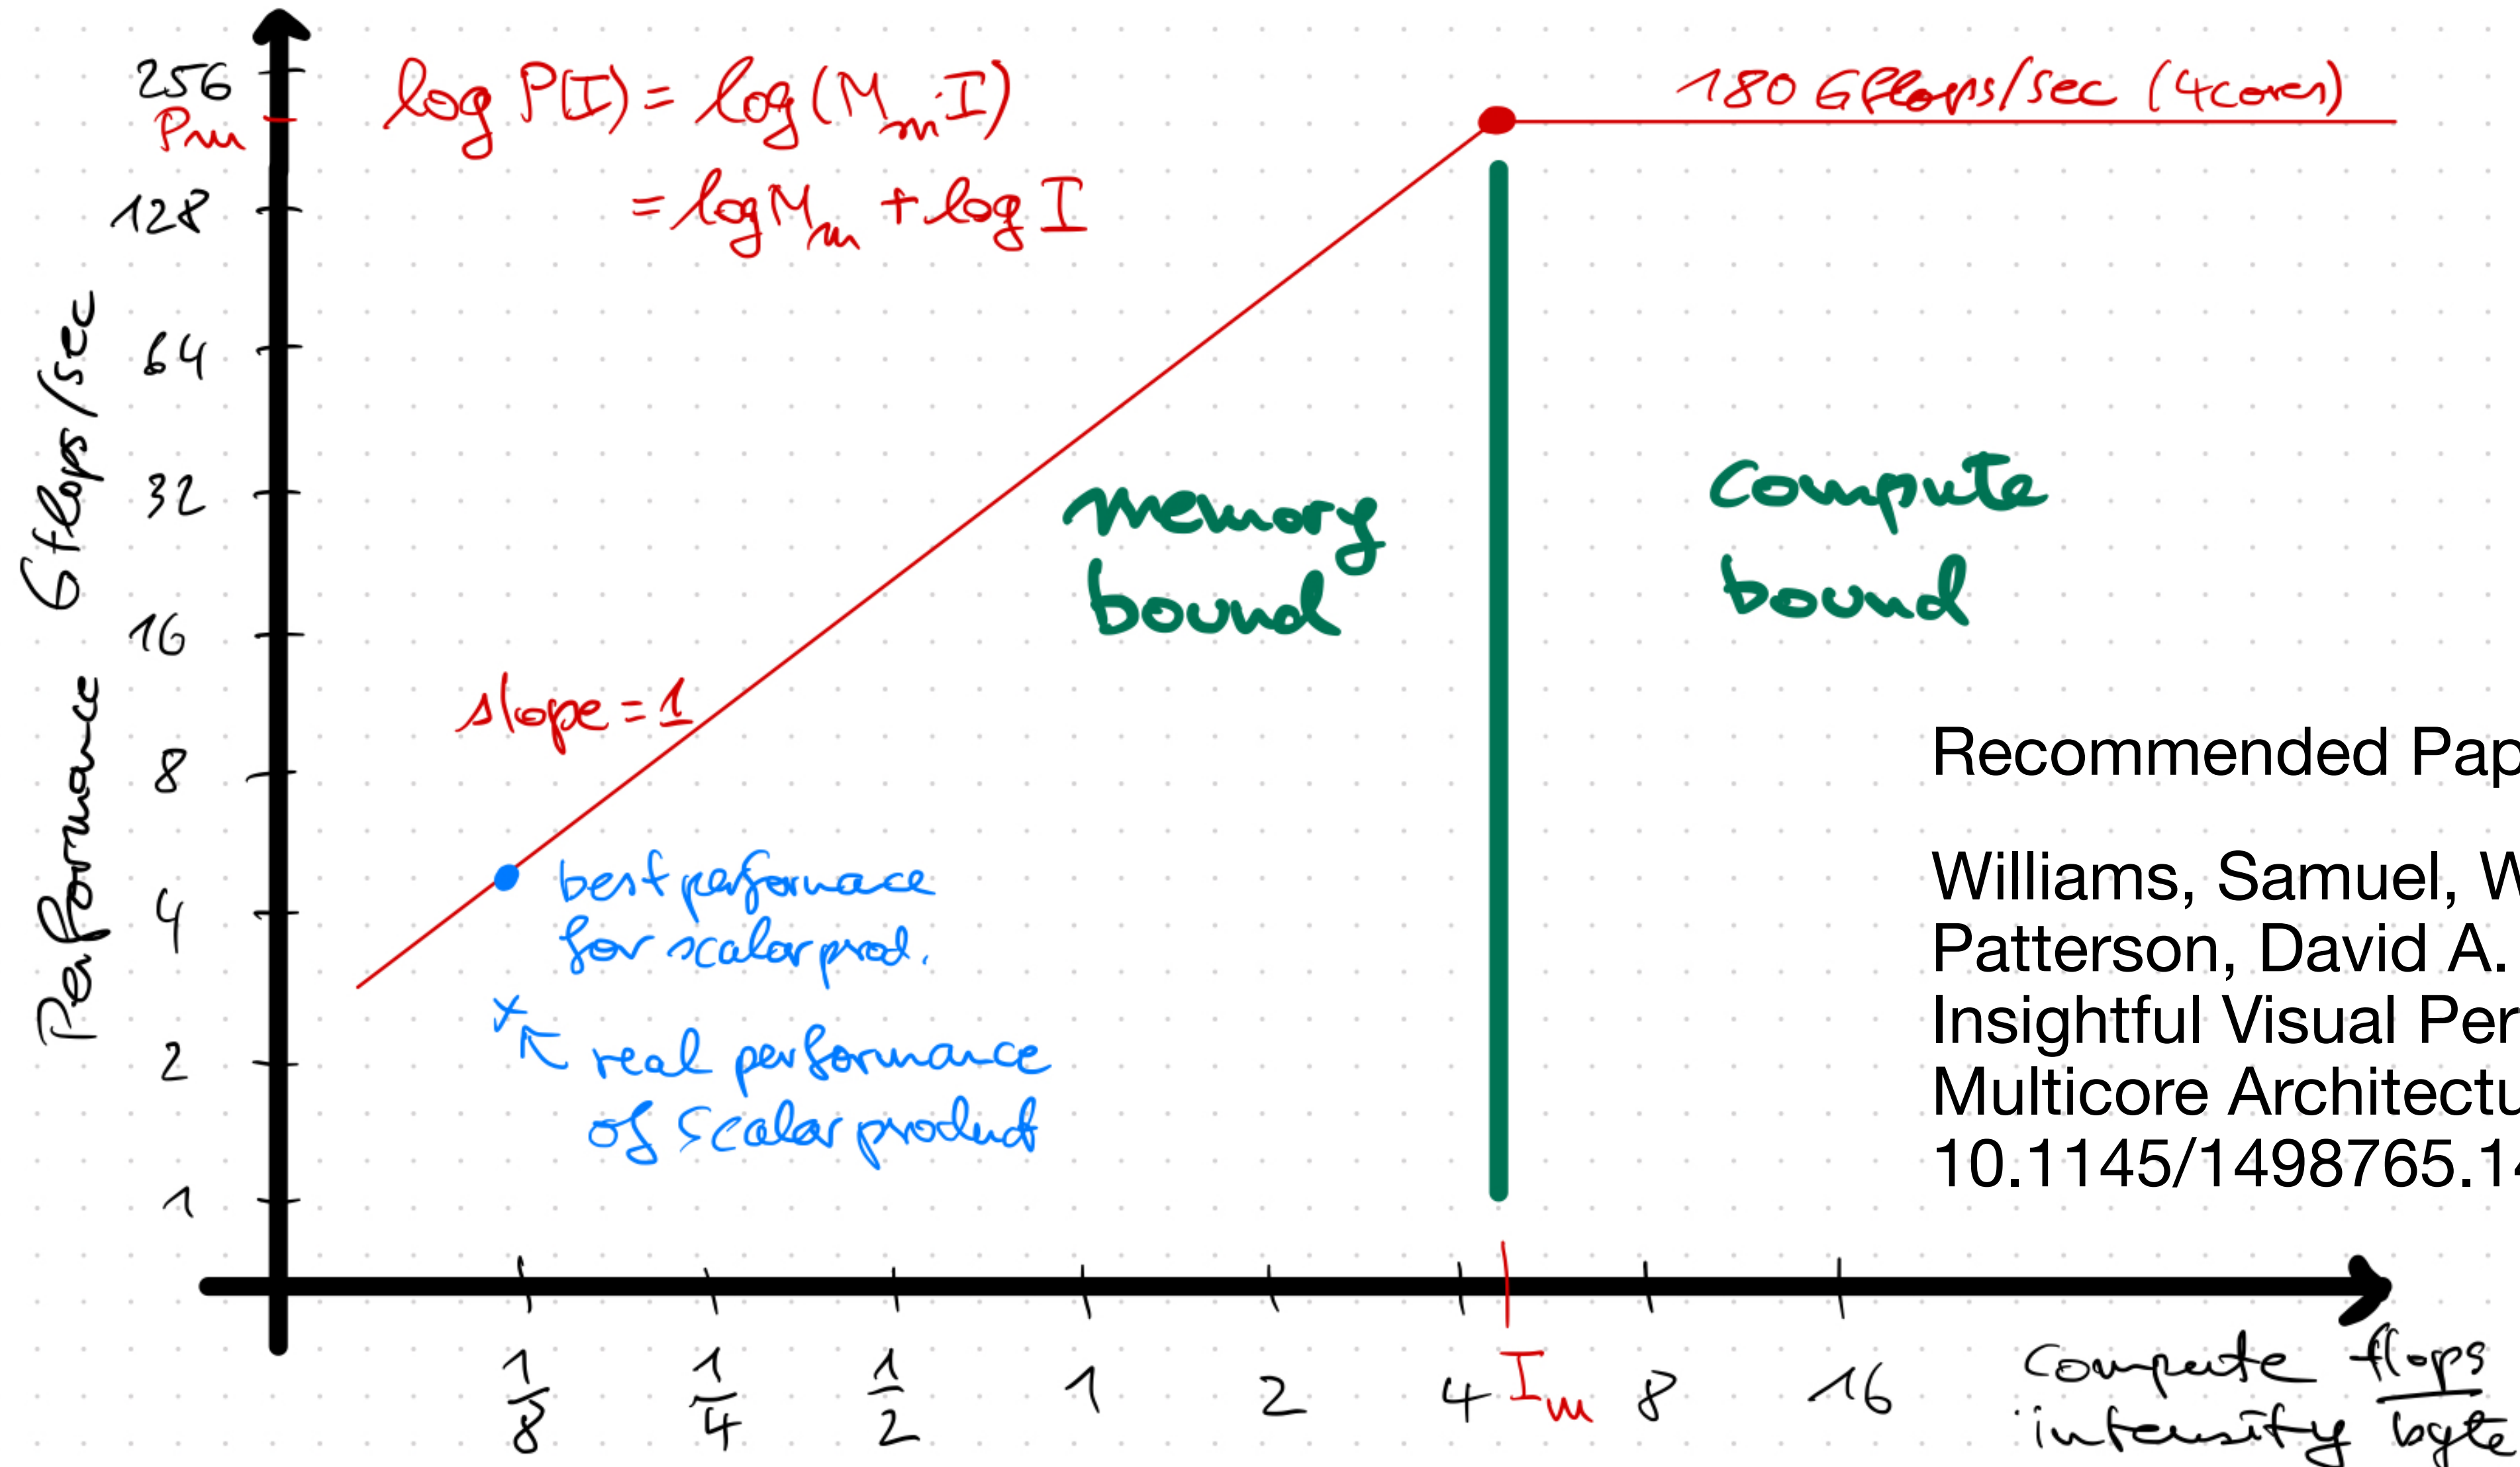 256
Pm
128
64
32
16
8
4
2
1
Performance Gflops/sec
log P(I) = log (Mm · I)
= log Mm + log I
180 Gflops/sec (4 cores)
memory
bound
compute
bound
slope = 1
best perfornace
for scalar prod.
real performance
of scalar product
Recommended Pap
Williams, Samuel, W
Patterson, David A.
Insightful Visual Per
Multicore Architectu
10.1145/1498765.14
1/8 1/4 1/2 1 2 4 Im 8 16
compute flops
intensity byte